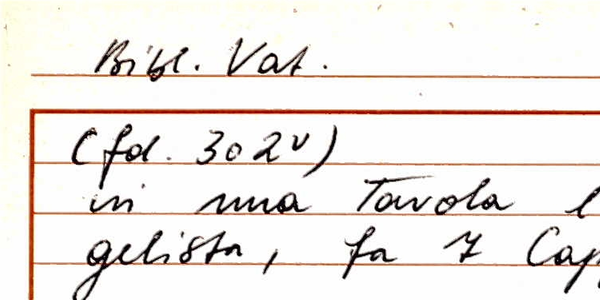 Bibl. Vat.
(fol. 302v)
in una Tavola l
gelista, fa 7 Cap